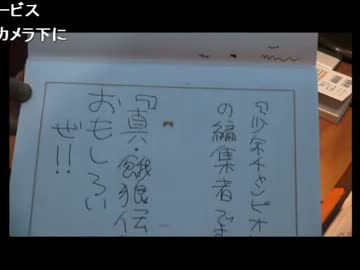 ービス
カメラ下に
『少年チャンピオ
の編集者です
『真・餓狼伝
おもしろい
ぜ!!